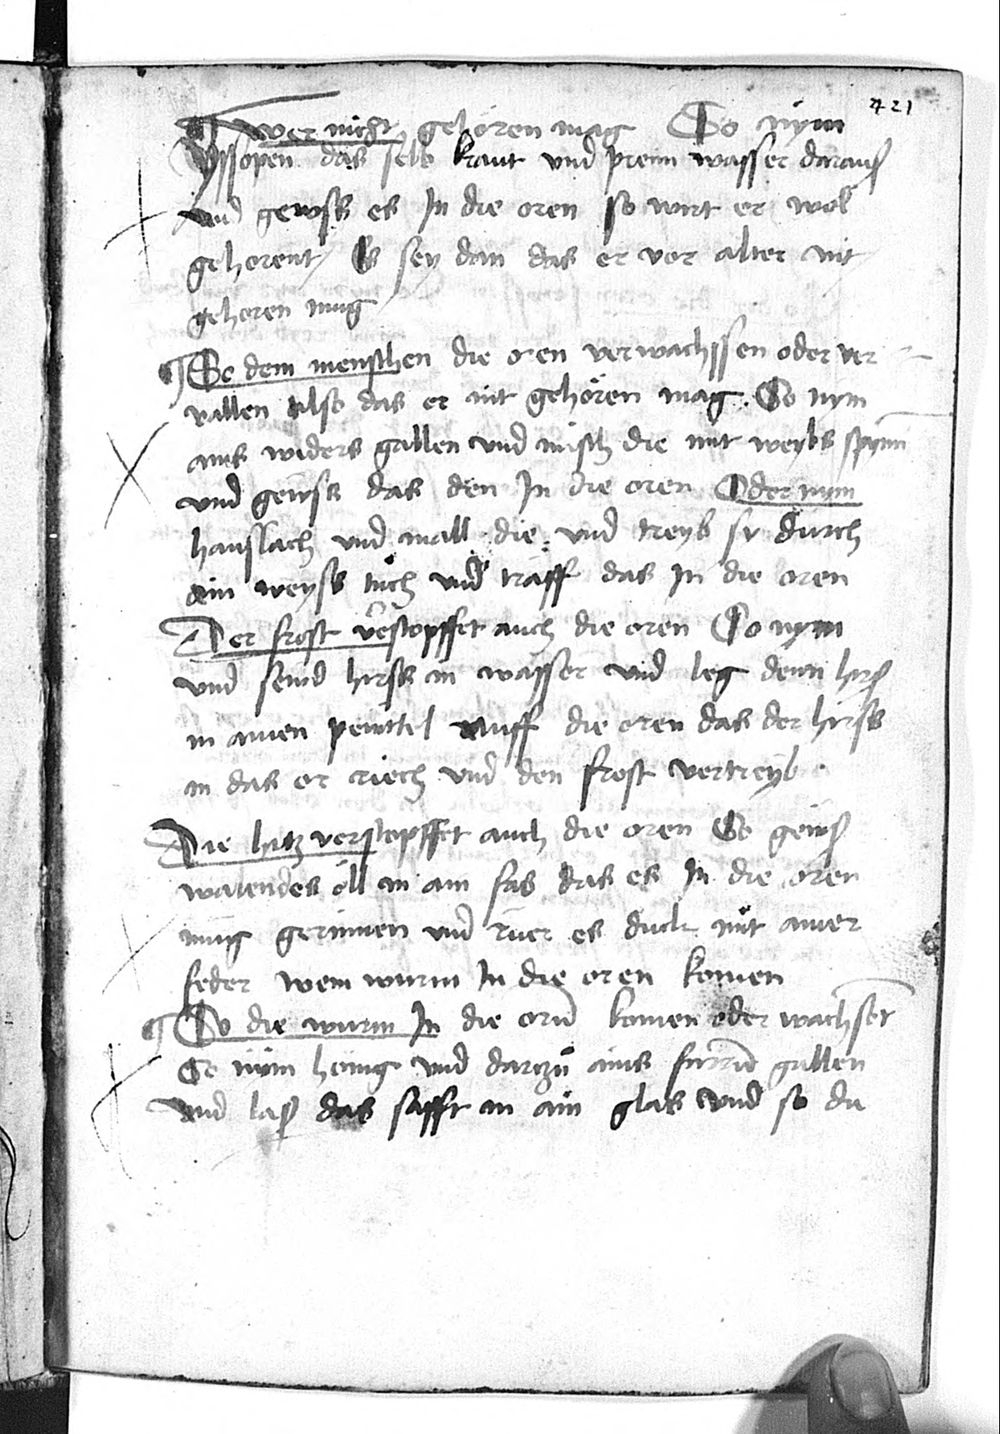 421
wer nicht gehoren mag So nym
yssopen das selb kraut vnd prenn wasser daraus
vnd gewss es In die oren so wirt er wol
gehorent Es sey dan das er vor alter nit
gehoren mug
¶ So dem menschen die oren verwachssen oder ver
vallen also das er nit gehören mag. So nym
ains widers gallen vnd misch die mit weybs spünn
vnd gewss das den In die oren Oder nym
hauslach vnd mall die vnd treyb sy durch
ain weyss tuch vnd träff das In die oren
Der frost verstopffet auch die oren So nym
vnd seud hirss in wasser vnd leg denn hirs
in ainen pewttel auff die oren das der hirss
in das or riech vnd den frost vertreyb
Die hitz verstopffet auch die oren So gews
walendes öll in ain fas das es In die oren
müg gerinnen vnd rüer es duck mit ainer
feder wem wurm In die oren komen
¶ So die wurm In die orn komen oder wachsen
So nym honig vnd darczu ains gallen
vnd las das safft in ain glas vnd so du